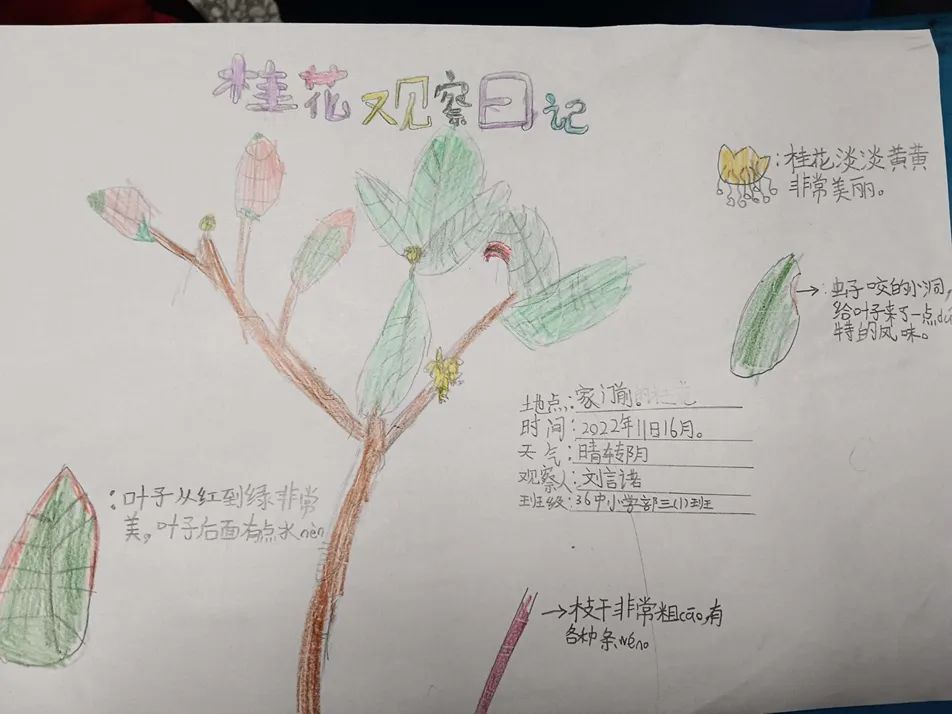 桂花观察日记
：桂花淡淡黄黄
非常美丽。
：虫子咬的小洞，
给叶子来了一点dú
特的风味。
地点：家门前
时间：2022年11日16月。
天气：晴转阴
观察人：刘言诺
班级：36中小学部三(1)班
：叶子从红到绿非常
美，叶子后面有点水nèn
→枝干非常粗cāo，有
各种条wén。